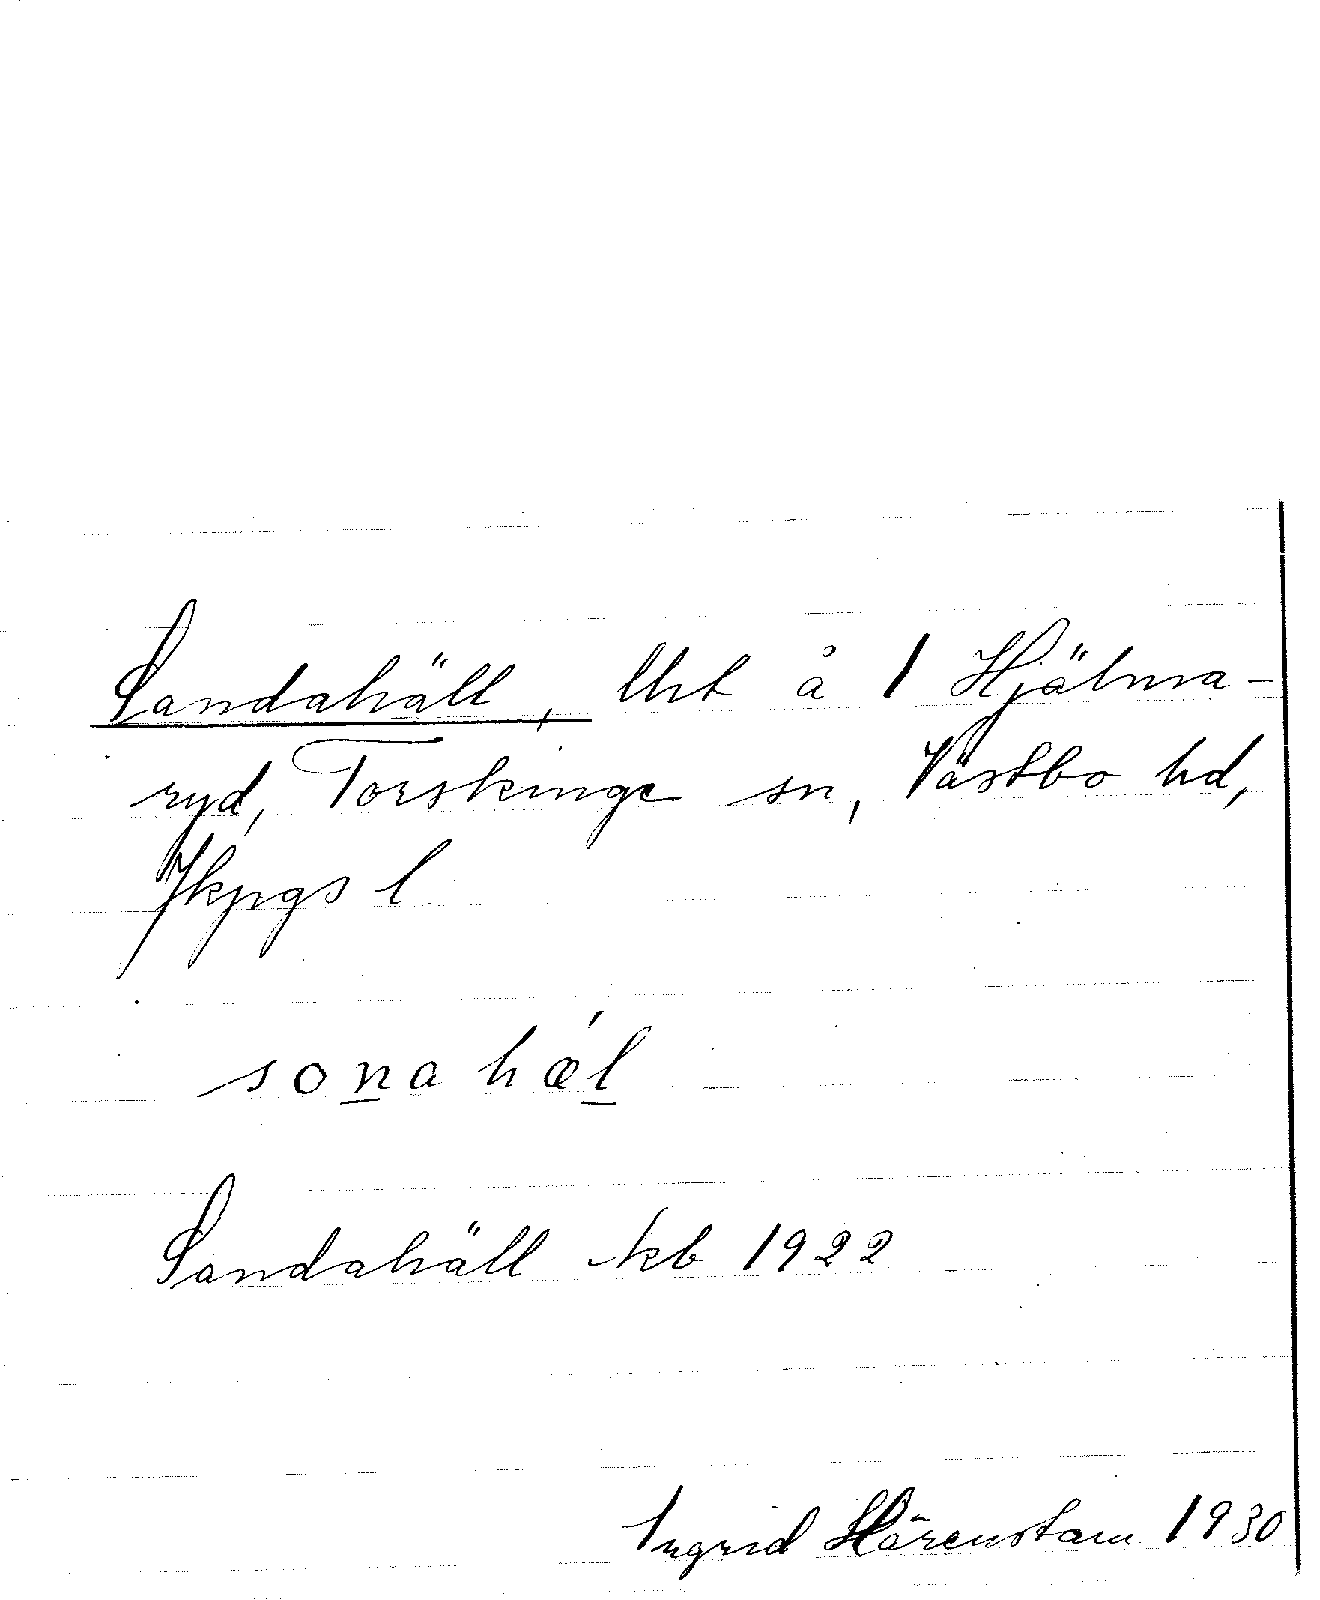 Sandahäll, lht å 1 Hjälma-
ryd, Torskinge sn, Västbo hd,
Jkpgs l
sonahæ´l
Sandahäll kb 1922
Ingrid Hörenstam 1930